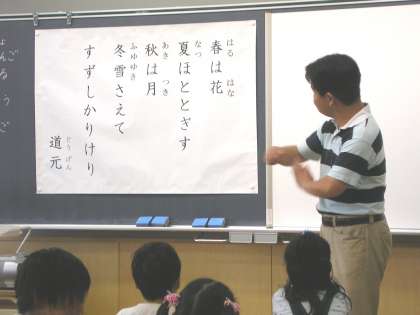 春は花
はる はな
夏ほととぎす
なつ
秋は月
あき つき
冬雪さえて
ふゆゆき
すずしかりけり
道元
どうげん